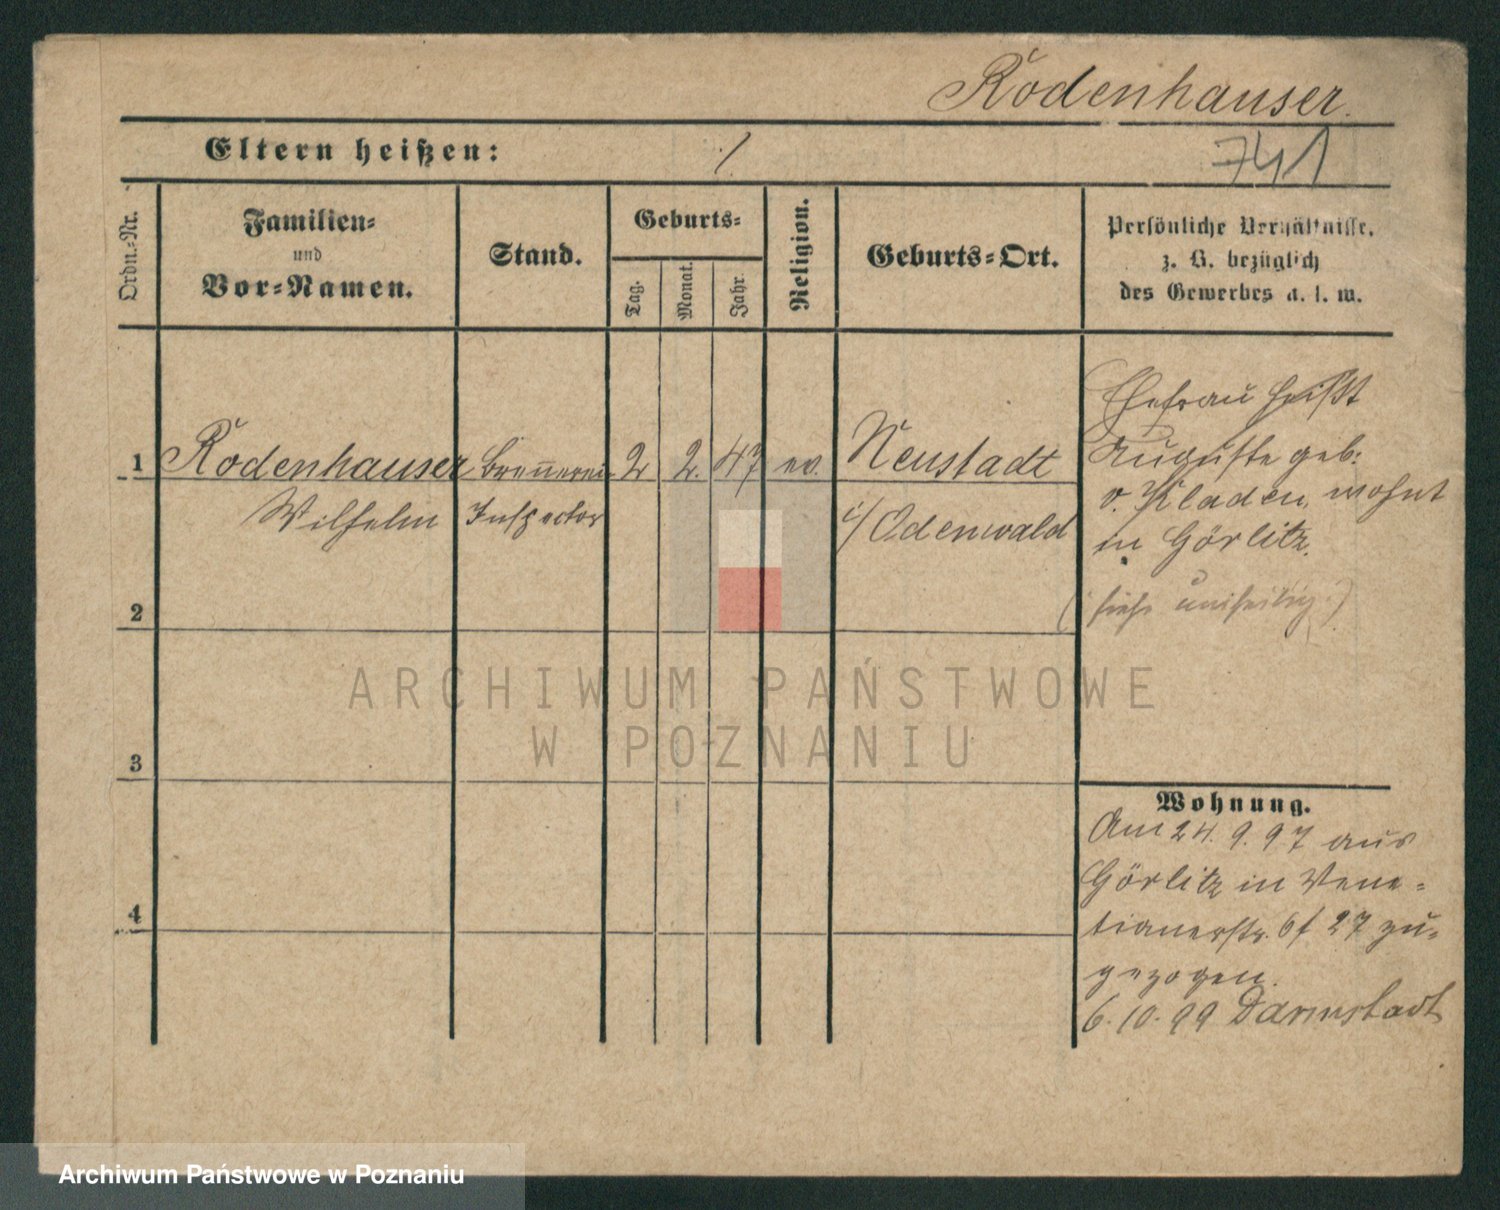 Rodenhauser.
Eltern heißen: ⁒
741
Ordn.-Nr.
Familien-
und
Vor-Namen.
Stand.
Geburts-
Tag.
Monat.
Jahr.
Religion.
Geburts-Ort.
Persönliche Verhältnisse,
z. B. bezüglich
des Gewerbes u. s. w.
1 Rodenhauser Brennerei 2 2. 47 ev. Neustadt
Wilhelm Inspector i/Odenwald
Ehefrau heißt
Auguste geb:
v. Kladen, wohnt
in Görlitz.
(siehe umseitig.)
2
3
4
Wohnung.
Am 24. 9. 97 aus
Görlitz in Vene-
tianerstr. 27 zu-
gezogen.
6. 10. 99 Darmstadt
ARCHIWUM PAŃSTWOWE
W POZNANIU
Archiwum Państwowe w Poznaniu